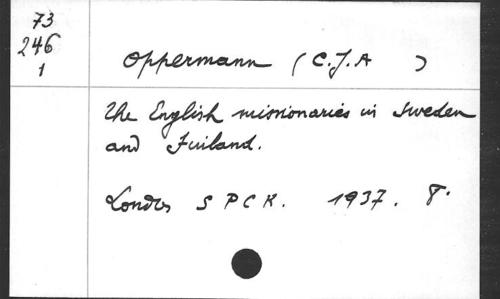 73
246
1
Oppermann (C.J.A )
The English missionaries in Sweden
and Finland.
Londres S P C K. 1937. 8°.